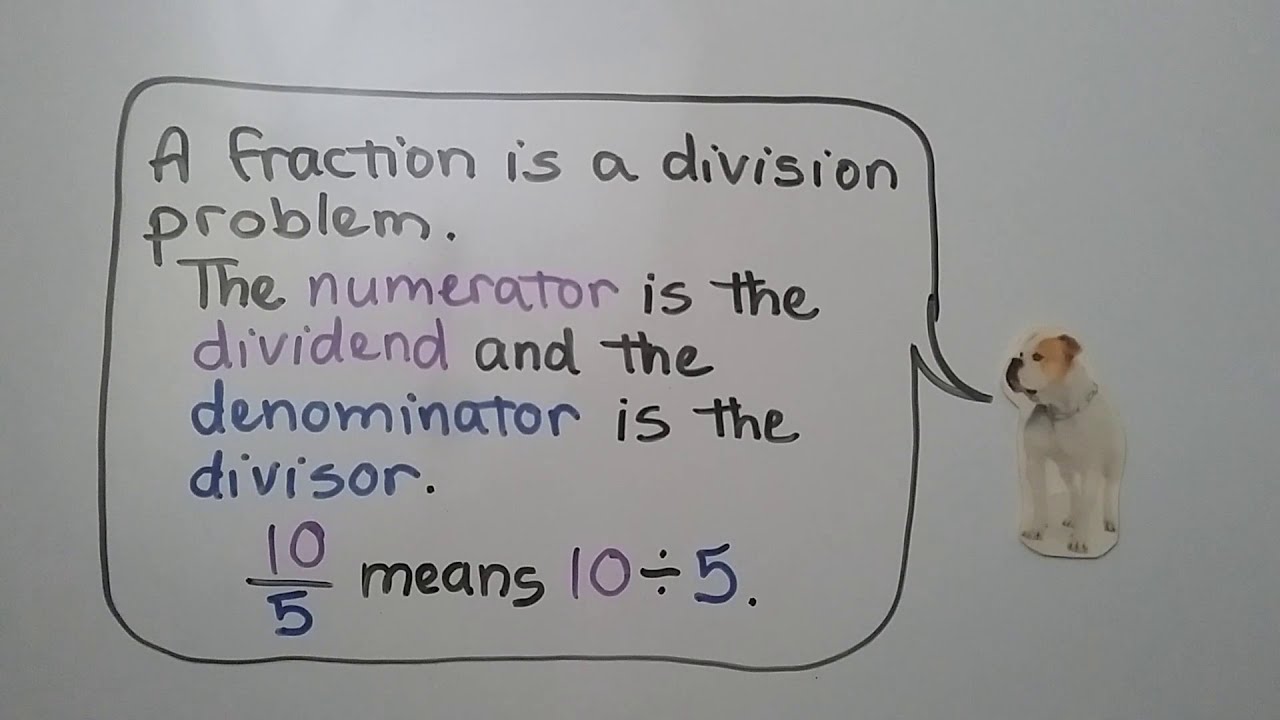 A fraction is a division
problem.
The numerator is the
dividend and the
denominator is the
divisor.
10/5 means 10÷5.